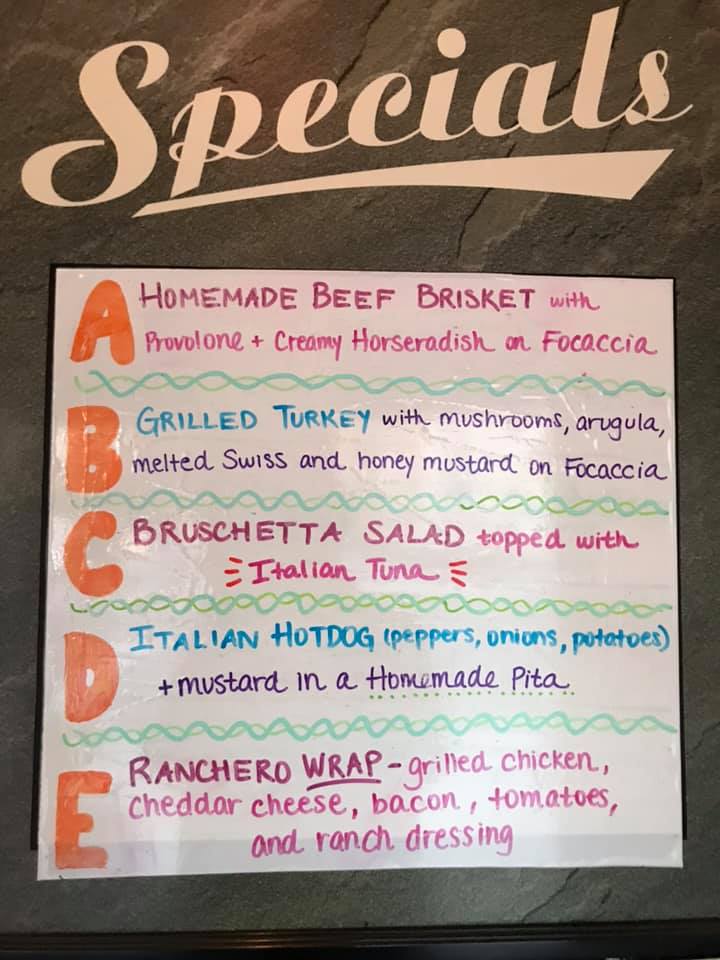 Specials
A HOMEMADE BEEF BRISKET with
Provolone + Creamy Horseradish on Focaccia
B GRILLED TURKEY with mushrooms, arugula,
melted Swiss and honey mustard on Focaccia
C BRUSCHETTA SALAD topped with
Italian Tuna
D ITALIAN HOTDOG (peppers, onions, potatoes)
+ mustard in a Homemade Pita
E RANCHERO WRAP - grilled chicken,
cheddar cheese, bacon, tomatoes,
and ranch dressing